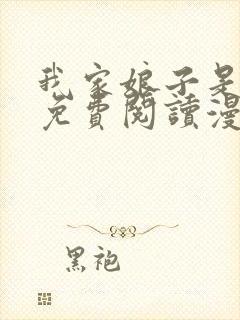 我家娘子是
免費閱讀漫
黑袍